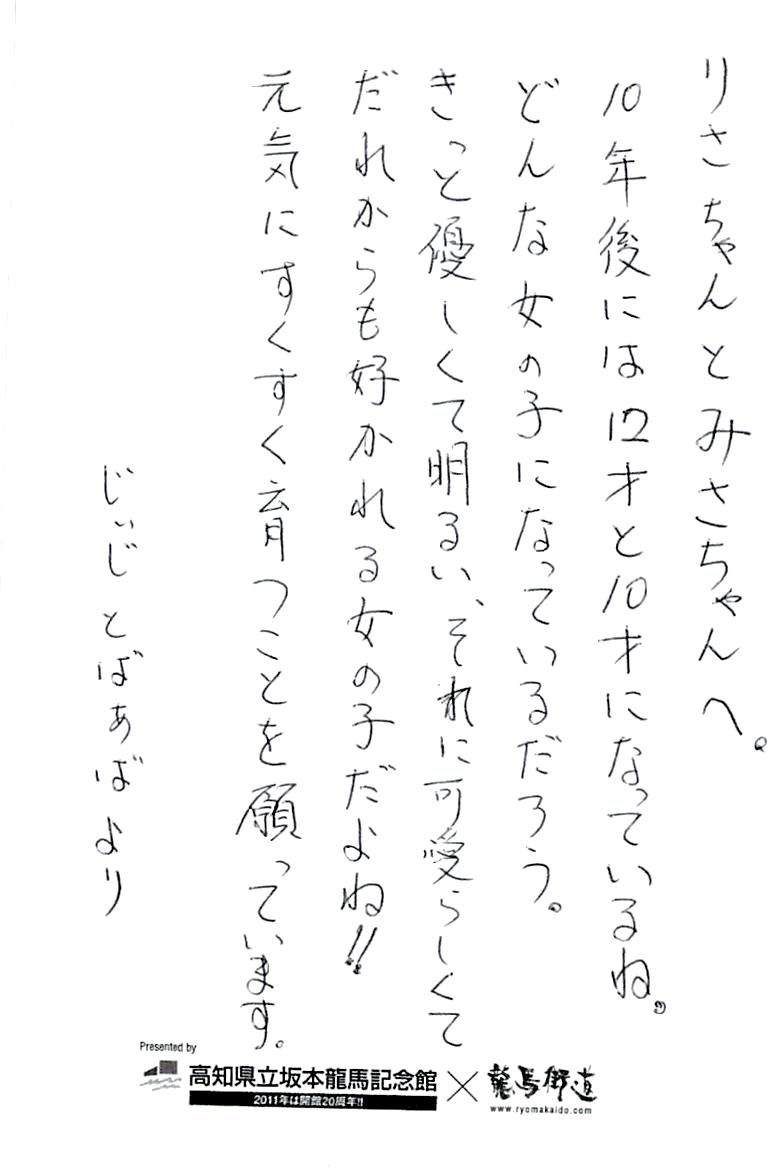 りさちゃんとみさちゃんへ。
10年後には12才と10才になっているね。
どんな女の子になっているだろう。
きっと優しくて明るい、それに可愛らしくて
だれからも好かれる女の子だよね!!
元気にすくすく育つことを願っています。
じぃじとばぁばより
Presented by
高知県立坂本龍馬記念館×龍馬街道
2011年は開館20周年!!
www.ryomakaido.com